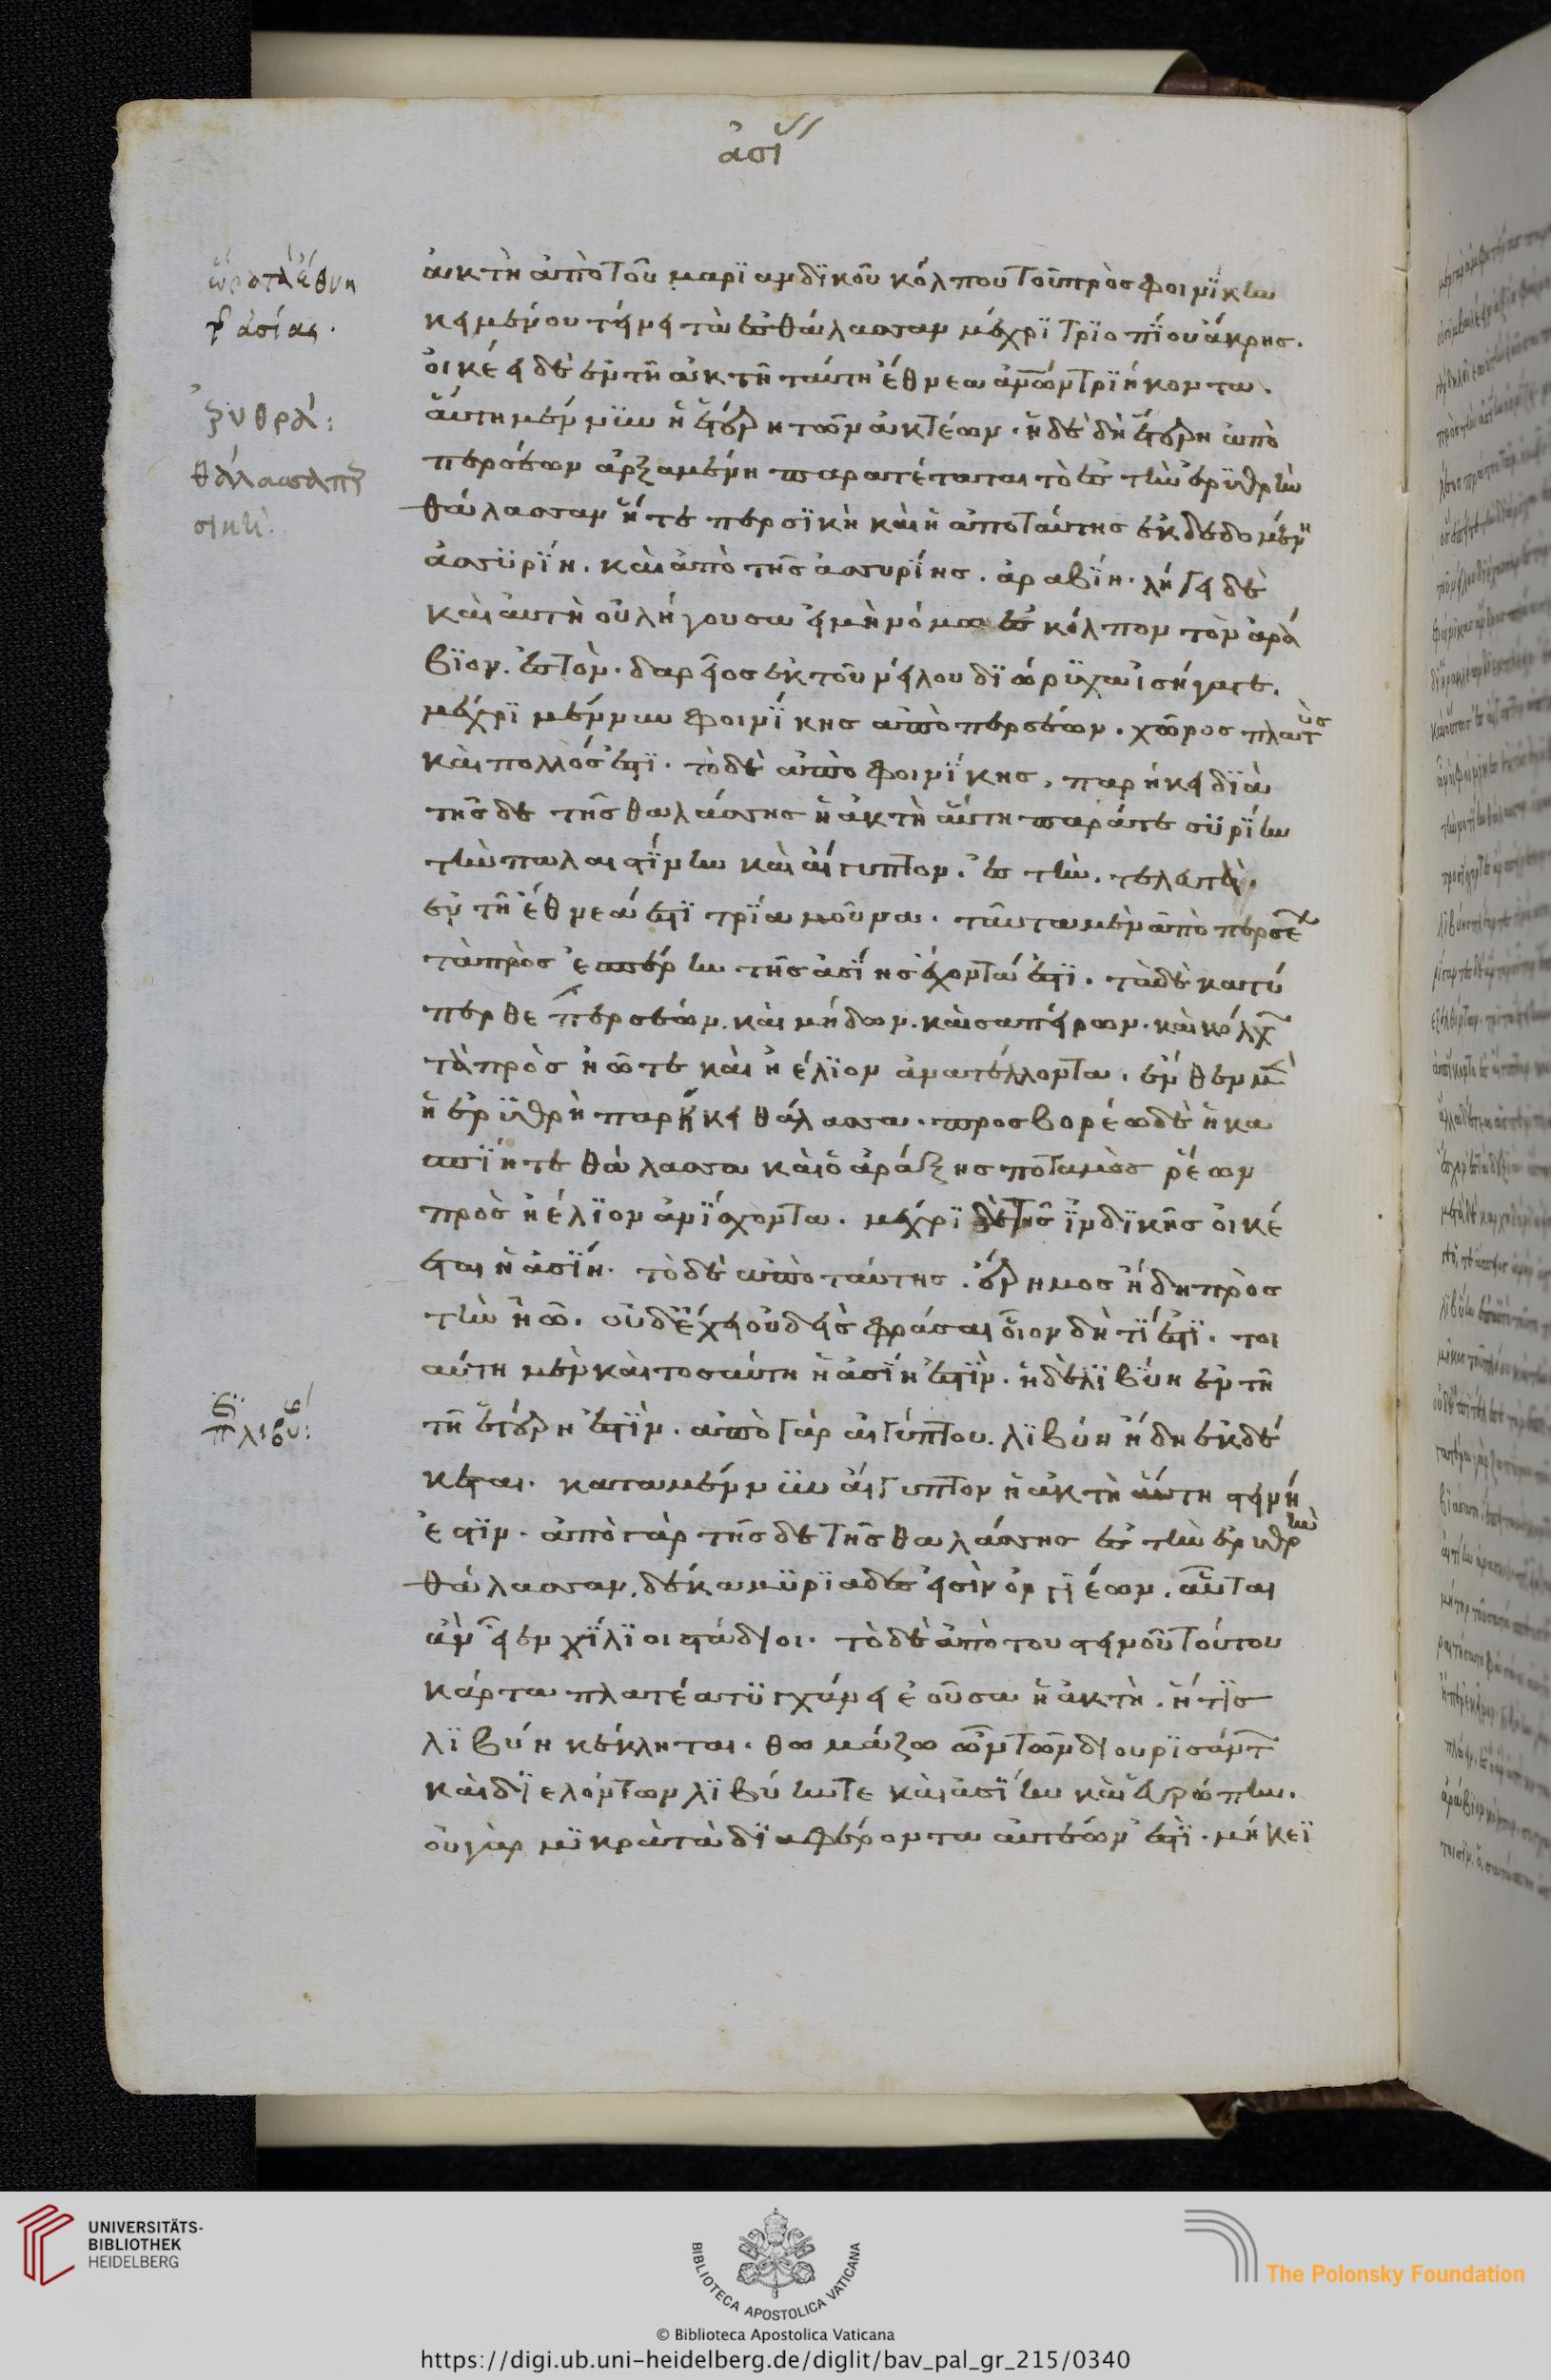 ἀσί
ὅρα τὰ ἔθνη
τ ἀσίας.
ἀκτὴ ἀπὸ τοῦ μαριανδικοῦ κόλπου τοῦ πρὸς φοινίκην
κειμένου τείνει τὰ ἐς θάλασσαν μέχρι τριοπίου ἄκρης.
οἰκέει δὲ ἐν τῆ ἀκτῆ ταύτη ἔθνεα ἀνθρώπων τριήκοντα.
αὕτη μέν νιν ἡ ἑτέρη τῶν ἀκτέων. ἡ δὲ δὴ ἑτέρη ἀπὸ
περσέων ἀρξαμένη παρατέταται τὸ ἐς τὴν ἐρυθρὴν
θάλασσαν ἥ τε περσικὴ καὶ ἡ ἀπὸ ταύτης ἐκδεδομένη
ἀσσυρίη. καὶ ἀπὸ τῆς ἀσσυρίης. ἀραβίη. λήγει δὲ
καὶ αὐτὴ οὐ λήγουσα εἰ μὴ νόμω ἐς κόλπον τὸν ἀρά
βιον. ἐς τὸν. δαρεῖος ἐκ τοῦ νείλου διώρυχα ἰσήγαγε.
μέχρι μέν νυν φοινίκης ἀπὸ περσέων. χῶρος πλατὺς
καὶ πολλός ἐστι. τὸ δὲ ἀπὸ φοινίκης, παρήκει διὰ
τῆσδε τῆς θαλάσσης ἡ ἀκτὴ αὕτη παρά τε συρίην
τὴν παλαιστίνην καὶ αἴγυπτον. ἐς τὴν. τελευτᾶ.
ἐν τῆ ἔθνεά ἐστι τρία μοῦνα. ταῦτα μὲν ἀπὸ περσέων
τὰ πρὸς ἑσπέρην τῆς ἀσίης ἔχοντά ἐστι. τὰ δὲ κατύ
περθε περσέων. καὶ μήδων. καὶ σαπείρων. καὶ κόλχων
τὰ πρὸς ἠῶ τε καὶ ἠέλιον ἀνατέλλοντα. ἔνθεν μὲν
ἡ ἐρυθρὴ παρήκει θάλασσα. πρὸς βορέω δὲ ἡ κα
σπίη τε θάλασσα καὶ ὁ ἀράξης ποταμὸς ῥέων
πρὸς ἠέλιον ἀνίσχοντα. μέχρι δὲ τῆς ἰνδικῆς οἰκέ
εται ἡ ἀσίη. τὸ δὲ ἀπὸ ταύτης. ἔρημος ἤδη πρὸς
τὴν ἠῶ. οὐδ ἔχει οὐδεὶς φράσαι οἷον δή τί ἐστι. τοι
αύτη μὲν καὶ τοσαύτη ἡ ἀσίη ἐστίν. ἡ δὲ λιβύη ἐν τῆ
τῆ ἑτέρη ἐστίν. ἀπὸ γὰρ αἰγύπτου. λιβύη ἤδη ἐκδέ
κεται. κατὰ μέν νυν αἴγυπτον ἡ ἀκτὴ αὕτη στεινή
ἐστιν. ἀπὸ γὰρ τῆσδε τῆς θαλάσσης ἐς τὴν ἐρυθρὴν
θάλασσαν, δέκα μυριάδες εἰσὶν ὀργυιέων. αὗται
ἂν εἶεν χίλιοι στάδιοι. τὸ δὲ ἀπὸ του στεινοῦ τούτου
κάρτα πλατέα τυγχάνει ἐοῦσα ἡ ἀκτὴ. ἥτις
λιβύη κέκληται. θωμάζω ὦν τῶν διουρισάντων
καὶ διελόντων λιβύην τε καὶ ἀσίην καὶ εὐρώπην.
οὐ γὰρ μικρὰ τὰ διαφέροντα αὐτέων ἐστι. μήκεϊ
ἐρυθρά:
θάλασσα περ
σική.
περὶ λιβύ:
UNIVERSITÄTS-
BIBLIOTHEK
HEIDELBERG
BIBLIOTECA APOSTOLICA VATICANA
© Biblioteca Apostolica Vaticana
The Polonsky Foundation
https://digi.ub.uni-heidelberg.de/diglit/bav_pal_gr_215/0340